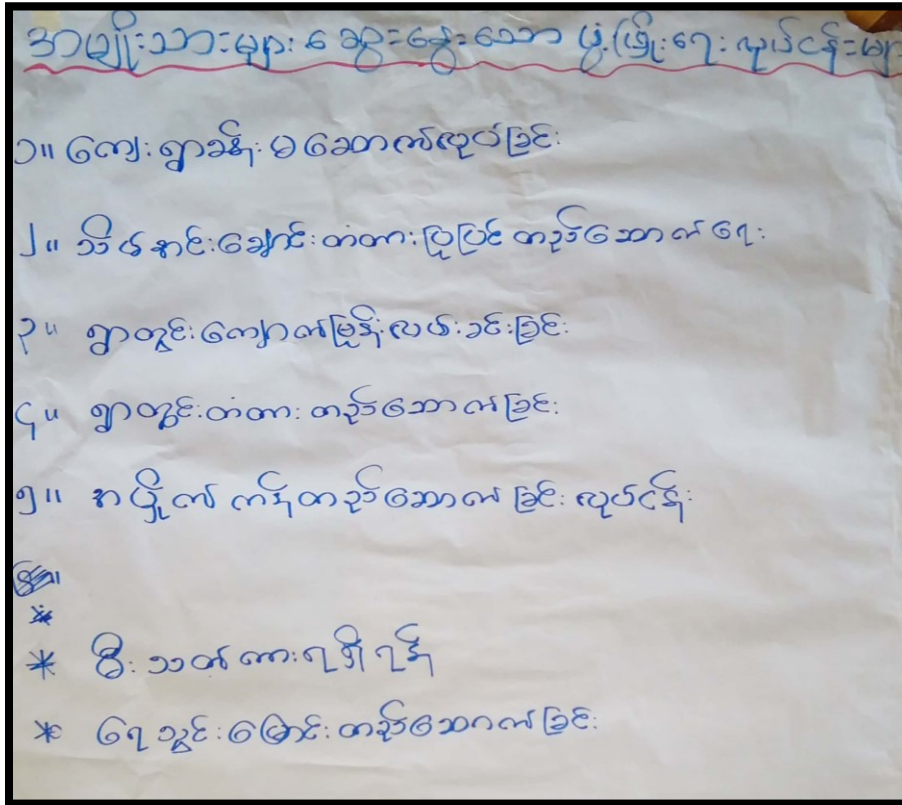 အမျိုးသားများ ဆွေးနွေးသော ဖွံ့ဖြိုးရေး လုပ်ငန်းများ
၁။ ကျေးရွာခန်းမ ဆောက်လုပ်ခြင်း
၂။ သိမ်ချောင်းတံတား ပြုပြင် တည်ဆောက်ရေး
၃။ ရွာတွင်းကျောက်မြုန်းလမ်းခင်းခြင်း
၄။ ရွာတွင်းတံတား တည်ဆောက်ခြင်း
၅။ တည်ဆောက်ခြင်း လုပ်ငန်း
* မီးသတ်ကားရရှိရန်
* ရေသွင်းမြောင်းတည်ဆောက်ခြင်း